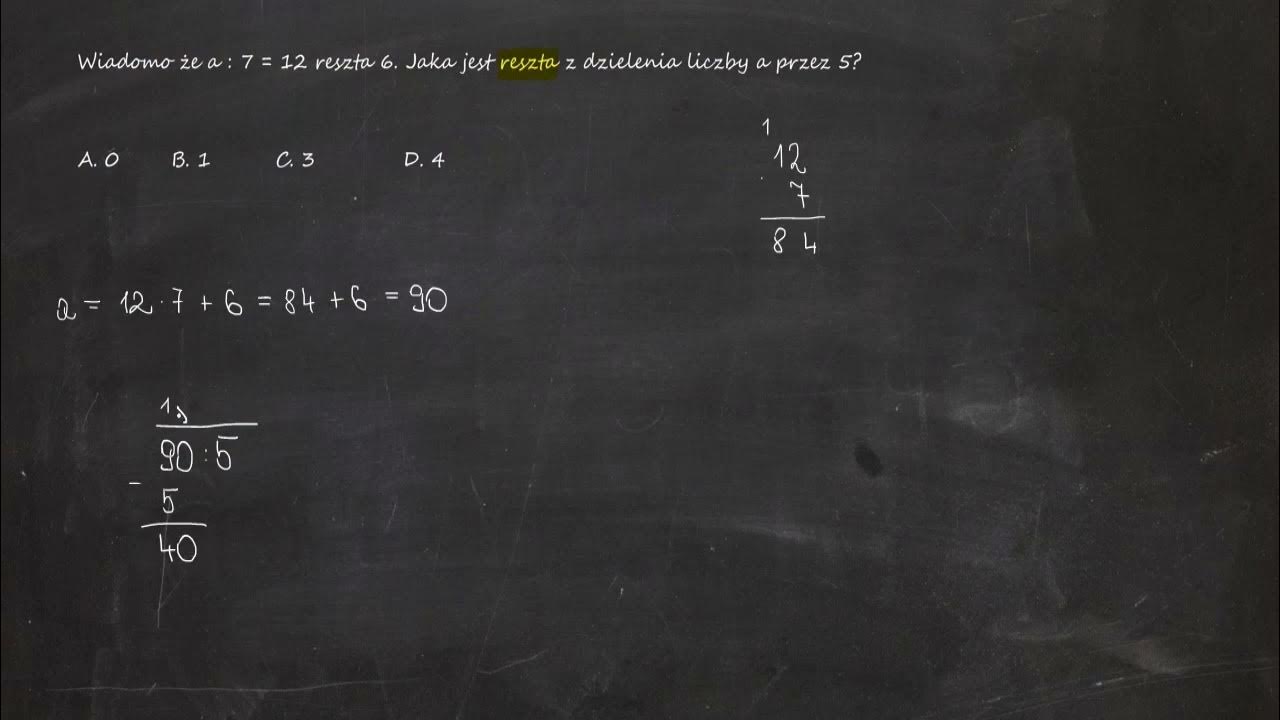 Wiadomo że a : 7 = 12 reszta 6. Jaka jest reszta z dzielenia liczby a przez 5?
A. 0 B. 1 C. 3 D. 4
1
12
· 7
8 4
a = 12 · 7 + 6 = 84 + 6 = 90
1
90 : 5
-
5
40